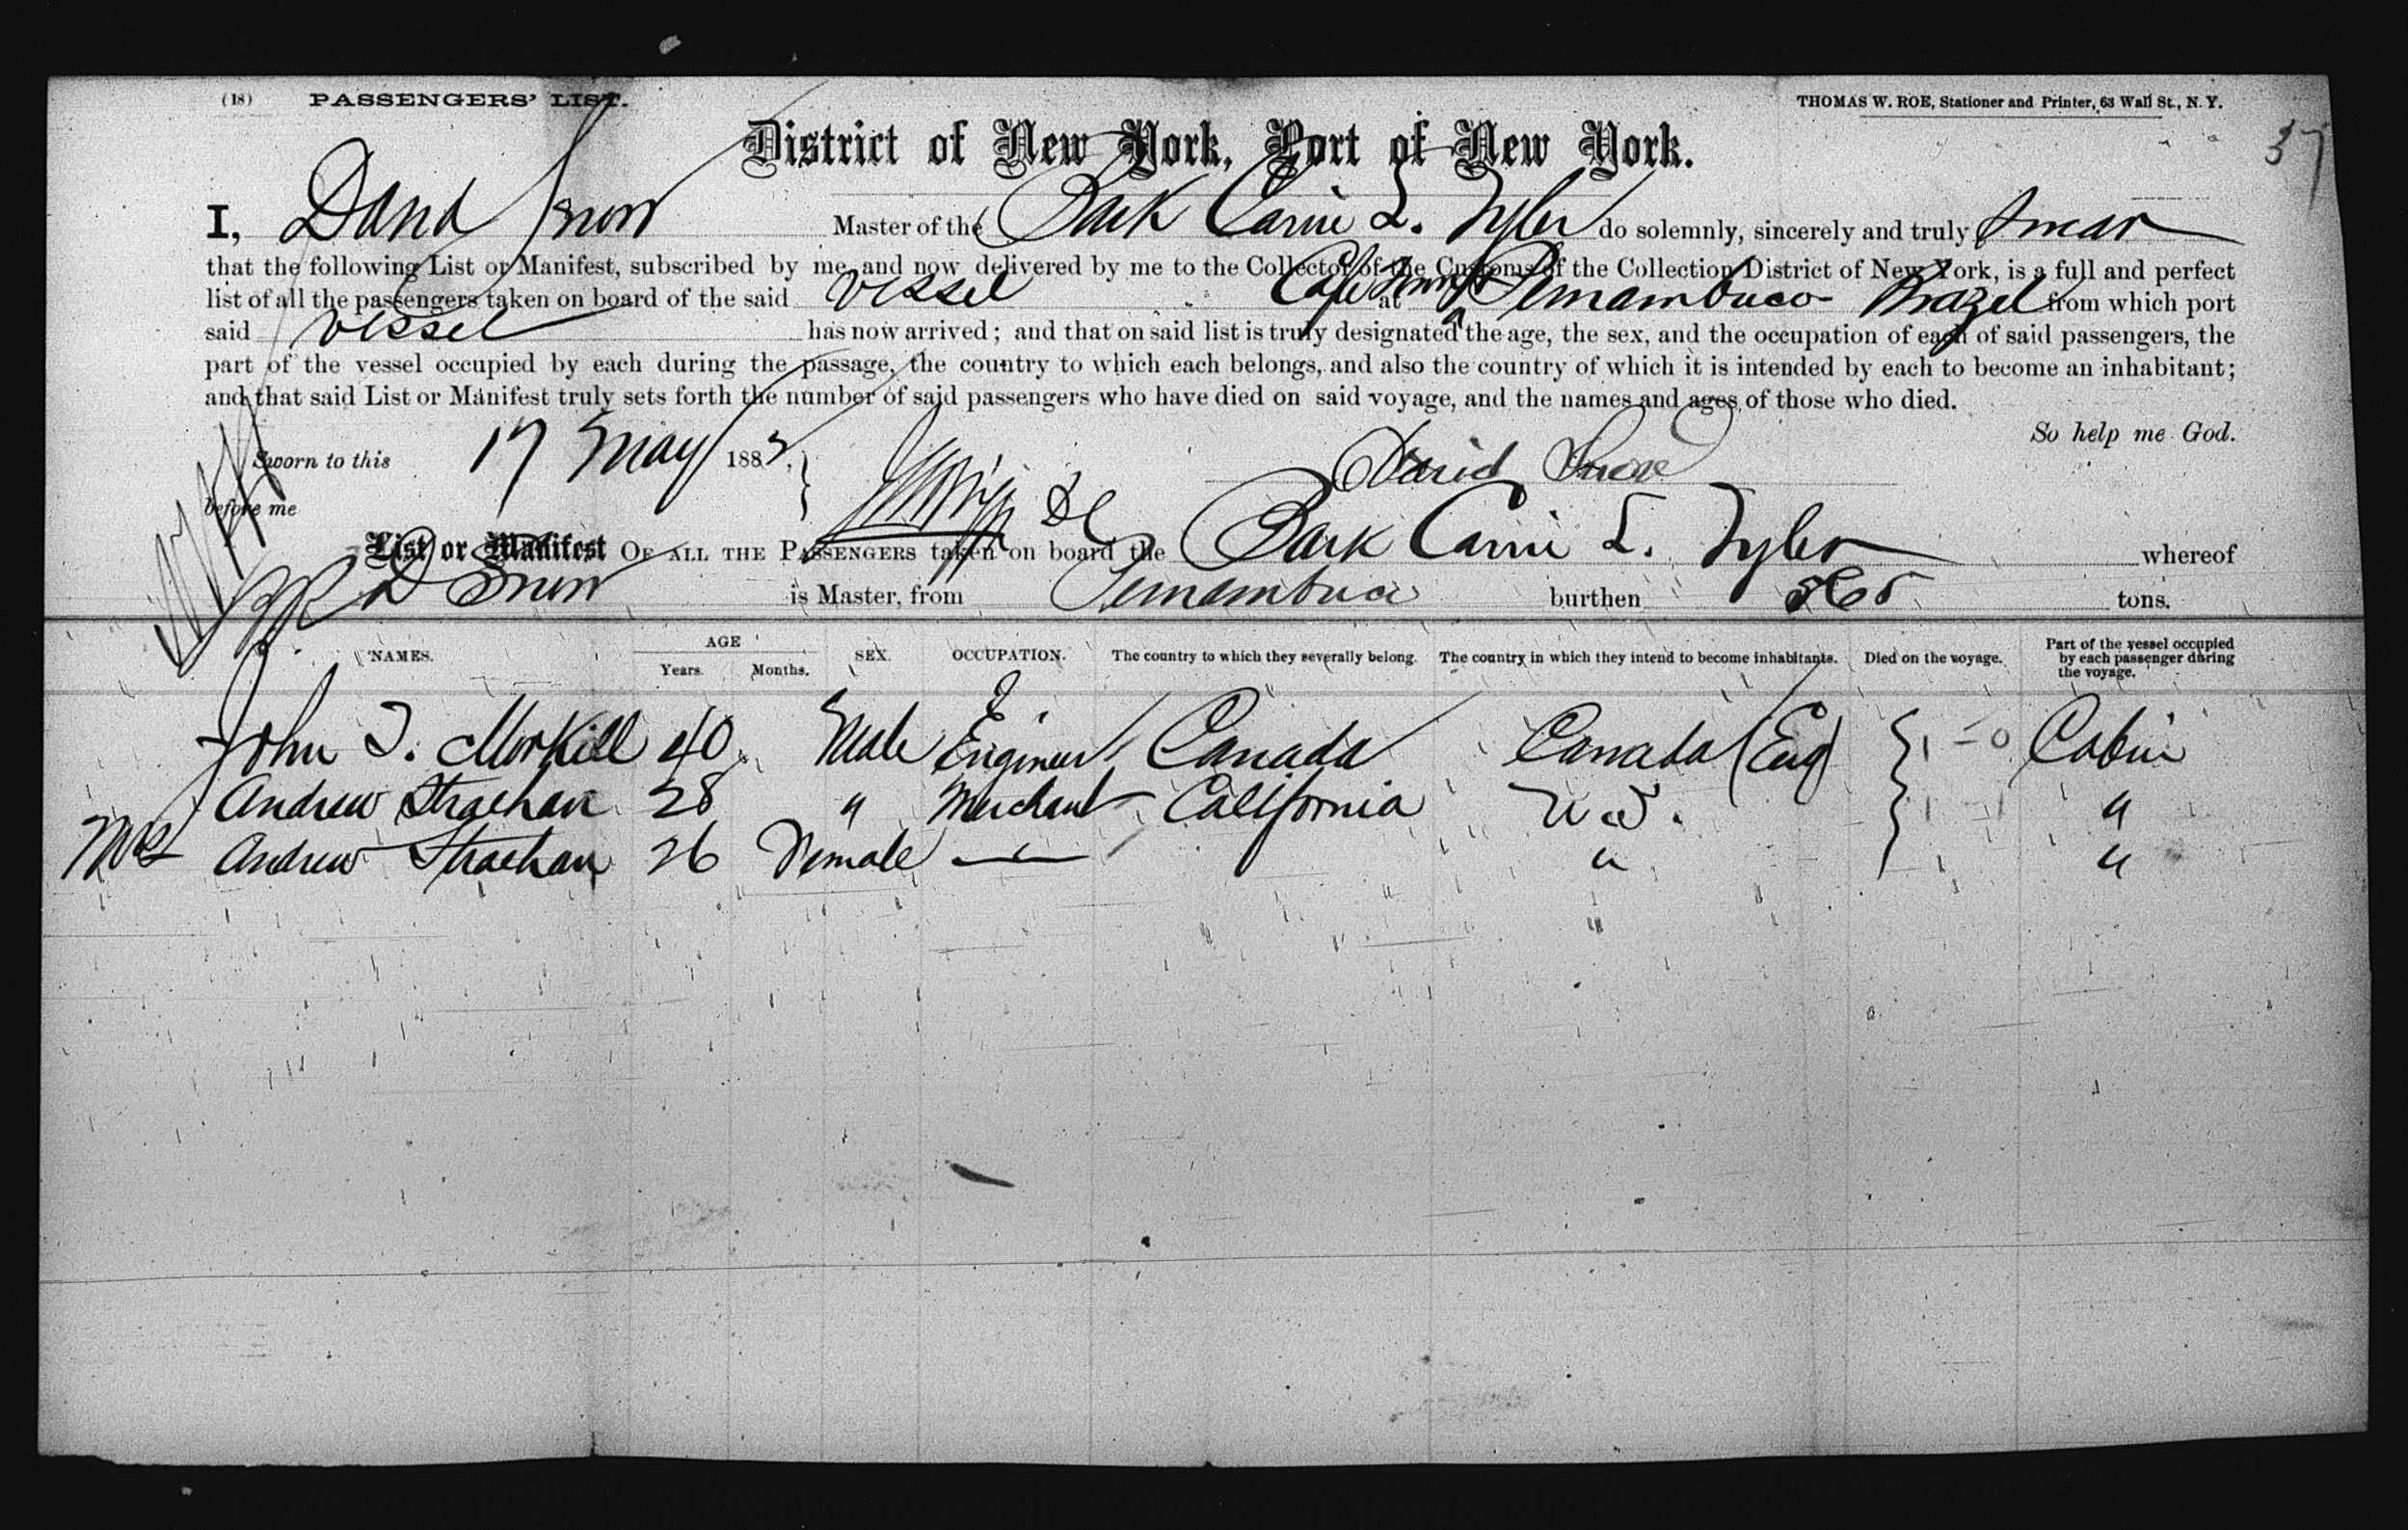 (18) PASSENGERS' LIST.
THOMAS W. ROE, Stationer and Printer, 63 Wall St., N. Y.
37
District of New York, Port of New York.
I, David Snow Master of the Bark Carrie L. Tyler do solemnly, sincerely and truly swear
that the following List or Manifest, subscribed by me, and now delivered by me to the Collector of the Customs of the Collection District of New York, is a full and perfect
list of all the passengers taken on board of the said vessel at Pernambuco Brazil from which port
said vessel has now arrived; and that on said list is truly designated the age, the sex, and the occupation of each of said passengers, the
part of the vessel occupied by each during the passage, the country to which each belongs, and also the country of which it is intended by each to become an inhabitant;
and that said List or Manifest truly sets forth the number of said passengers who have died on said voyage, and the names and ages of those who died.
So help me God.
Sworn to this 17 May 1883.
David Snow
before me
List or Manifest OF ALL THE PASSENGERS taken on board the Bark Carrie L. Tyler whereof
D Snow is Master, from Pernambuco burthen tons.
NAMES. AGE Years. Months. SEX. OCCUPATION. The country to which they severally belong. The country in which they intend to become inhabitants. Died on the voyage. Part of the vessel occupied by each passenger during the voyage.
John T. Morkill 40 Male Engineer Canada Canada (Eng) 1-0 Cabin
Andrew Strachan 28 " Merchant California U.S. 1-1 "
Mrs Andrew Strachan 26 Female — " "